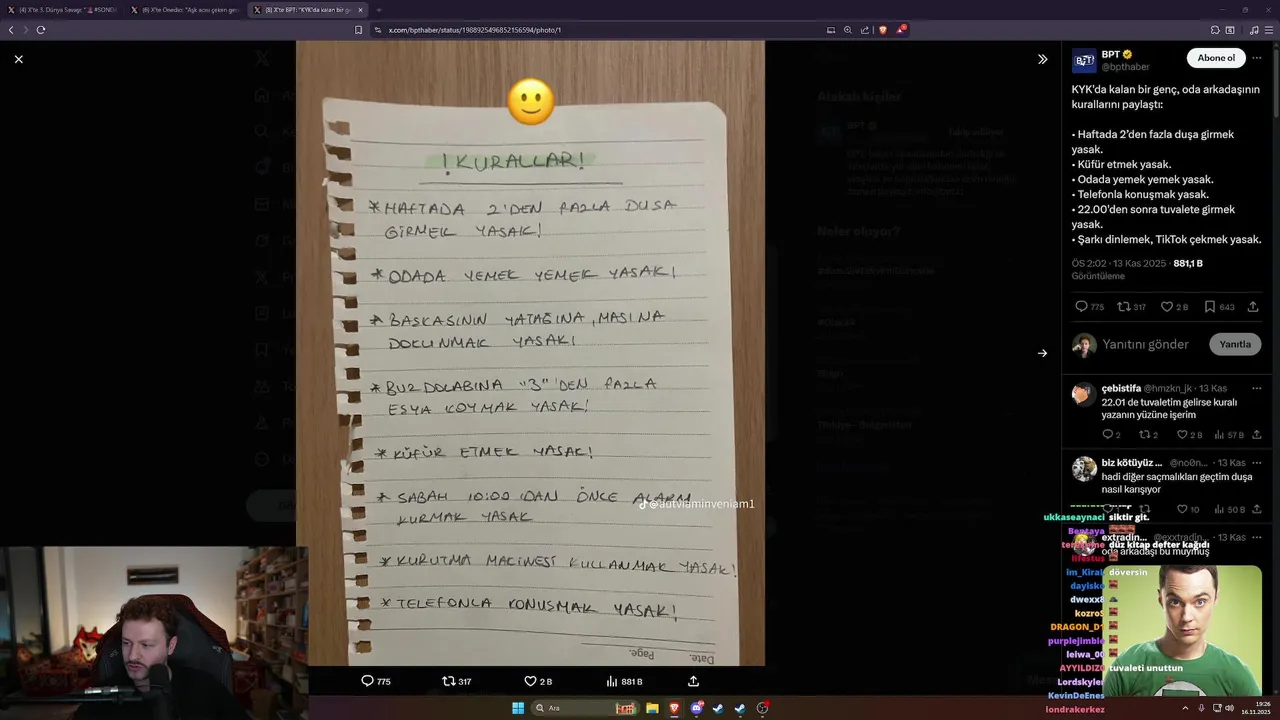 (4) X'te 3. Dünya Savaşı:
(8) X'te Onedio: "Aşk acısı çeken
(8) X'te BPT: "KYK'da kalan bir
x.com/bpthaber/status/1988925496852156594/photo/1
! KURALLAR!
*HAFTADA 2'DEN FAZLA DUSA
GİRMEK YASAK!
*ODADA YEMEK YEMEK YASAK!
*BASKASININ YATAĞINA, MASINA
DOKUNMAK YASAK!
*BUZDOLABINA "3"'DEN FAZLA
ESYA KOYMAK YASAK!
*KÜFÜR ETMEK YASAK!
* SABAH 10:00 'DAN ÖNCE ALARM
KURMAK YASAK
@autviaminveniam1
*KURUTMA MACİNESİ KULLANMAK YASAK!
*TELEFONLA KONUSMAK YASAK!
Page.
Date.
775
317
2 B
881 B
Alakalı kişiler
BPT
Neler oluyor?
BPT
@bpthaber
Abone ol
KYK'da kalan bir genç, oda arkadaşının
kurallarını paylaştı:
• Haftada 2'den fazla duşa girmek
yasak.
• Küfür etmek yasak.
• Odada yemek yemek yasak.
• Telefonla konuşmak yasak.
• 22.00'den sonra tuvalete girmek
yasak.
• Şarkı dinlemek, TikTok çekmek yasak.
ÖS 2:02 · 13 Kas 2025 · 881,1 B
Görüntüleme
775
317
2 B
643
Yanıtını gönder
Yanıtla
çebistifa @hmzkn_jk · 13 Kas
22.01 de tuvaletim gelirse kuralı
yazanın yüzüne işerim
2
2
2 B
57 B
biz kötüyüz ... @no0n... · 13 Kas
hadi diğer saçmalıkları geçtim duşa
nasıl karışıyor
10
50 B
extradin... @exxtradin... · 13 Kas
oda arkadaşı bu muymuş
ukkaseaynaci siktir git.
Bentaya
düz kitap defter kağıdı
im_Kiral döversin
dayisko
dwexx8
kozroS
DRAGON_D1
purplejimbie
leiwa_00
AYYILDIZO tuvaleti unuttun
Lordskyler
KevinDeEnes
londrakerkez
Ara
19:26
16.11.2025